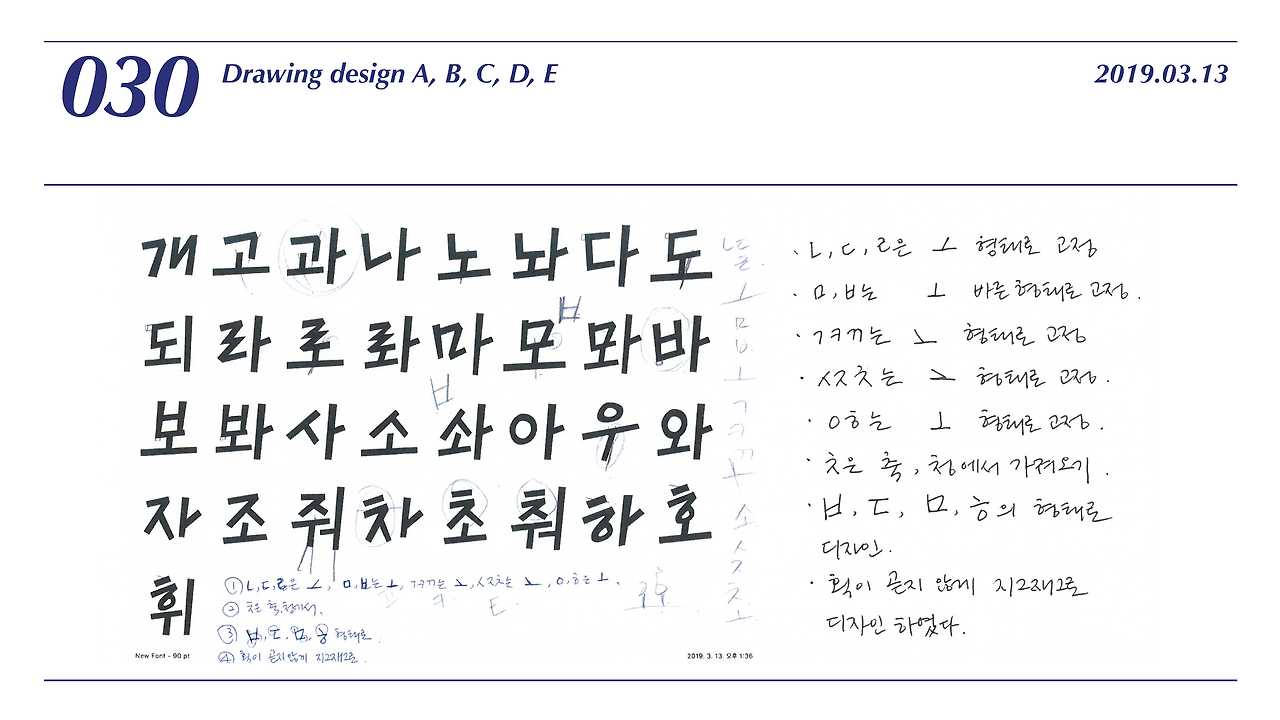 030 Drawing design A, B, C, D, E 2019.03.13
개고과나노놔다도
되라로롸마모뫄바
보봐사소솨아우와
자조줘차초춰하호
휘
① ㄴ,ㄷ,ㄹ은 ㅗ, ㅁ,ㅂ는 ㅗ, ㄱㅋㄲ는 ㅗ, ㅅㅈㅊ는 ㅗ, ㅇ,ㅎ은 ㅗ.
② ㅊ은 축,청에서.
③ ㅂ, ㄷ, ㅁ, ㅎ 형태로
④ 획이 곧지 않게 지그재그로.
New Font - 90 pt 2019. 3. 13. 오후 1:36
· ㄴ, ㄷ, ㄹ은 ㅗ 형태로 고정
· ㅁ, ㅂ는 ㅗ 바른 형태로 고정.
· ㄱㅋㄲ는 ㅗ 형태로 고정
· ㅅㅈㅊ는 ㅗ 형태로 고정.
· ㅇㅎ는 ㅗ 형태로 고정.
· ㅊ은 축, 청에서 가져오기.
· ㅂ, ㄷ, ㅁ, ㅎ의 형태로
디자인.
· 획이 곧지 않게 지그재그로
디자인 하였다.